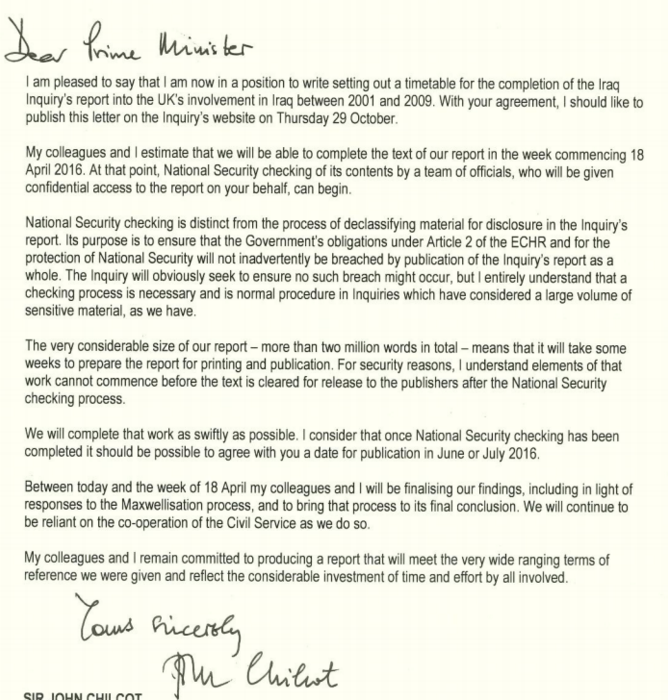 Dear Prime Minister
I am pleased to say that I am now in a position to write setting out a timetable for the completion of the Iraq
Inquiry's report into the UK's involvement in Iraq between 2001 and 2009. With your agreement, I should like to
publish this letter on the Inquiry's website on Thursday 29 October.
My colleagues and I estimate that we will be able to complete the text of our report in the week commencing 18
April 2016. At that point, National Security checking of its contents by a team of officials, who will be given
confidential access to the report on your behalf, can begin.
National Security checking is distinct from the process of declassifying material for disclosure in the Inquiry's
report. Its purpose is to ensure that the Government's obligations under Article 2 of the ECHR and for the
protection of National Security will not inadvertently be breached by publication of the Inquiry's report as a
whole. The Inquiry will obviously seek to ensure no such breach might occur, but I entirely understand that a
checking process is necessary and is normal procedure in Inquiries which have considered a large volume of
sensitive material, as we have.
The very considerable size of our report – more than two million words in total – means that it will take some
weeks to prepare the report for printing and publication. For security reasons, I understand elements of that
work cannot commence before the text is cleared for release to the publishers after the National Security
checking process.
We will complete that work as swiftly as possible. I consider that once National Security checking has been
completed it should be possible to agree with you a date for publication in June or July 2016.
Between today and the week of 18 April my colleagues and I will be finalising our findings, including in light of
responses to the Maxwellisation process, and to bring that process to its final conclusion. We will continue to
be reliant on the co-operation of the Civil Service as we do so.
My colleagues and I remain committed to producing a report that will meet the very wide ranging terms of
reference we were given and reflect the considerable investment of time and effort by all involved.
Yours sincerely
John Chilcot
SIR JOHN CHILCOT